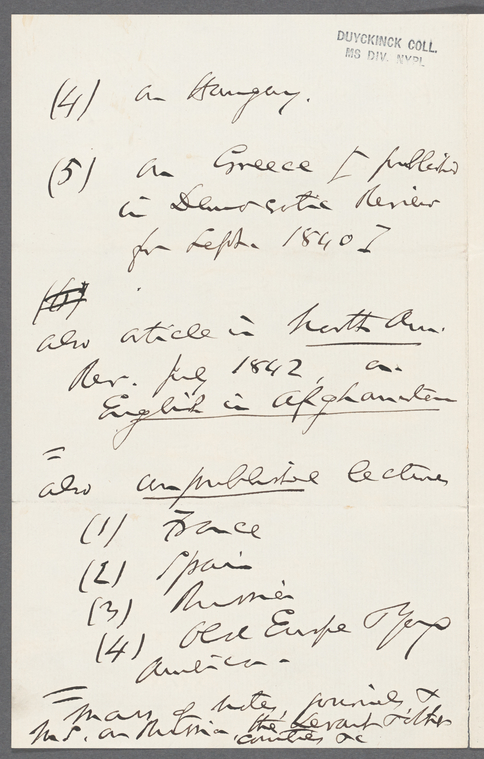 DUYCKINCK COLL.
MS DIV. NYPL
(4) on Hungary.
(5) on Greece [ published
in Democratic Review
for Sept. 1840 ]
(6)
also article in North Am.
Rev. July 1842, on
English in Afghanistan
=
also unpublished lectures
(1) France
(2) Spain
(3) Russia
(4) Old Europe & Young
America -
=
mass of notes, journals &
M.S. on Russia, the Levant & other
countries &c